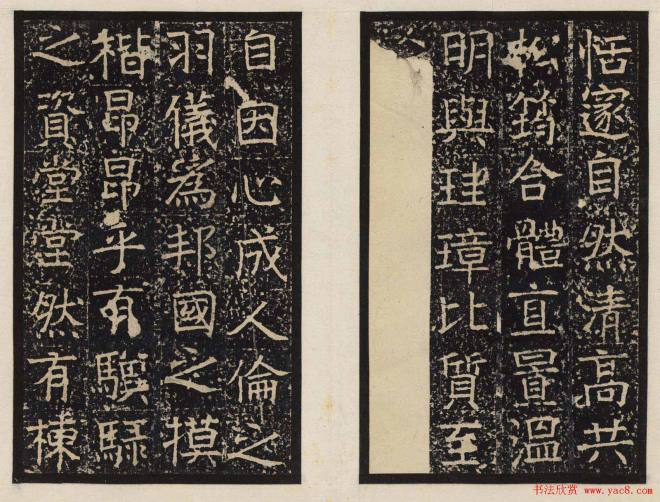 恬邃自然清高共
松筠合體直置溫
明與珪璋比質至
自因心成人倫之
羽儀為邦國之摸
楷昂昂乎有驥騄
之資堂堂然有棟
书法欣赏 www.yac8.com